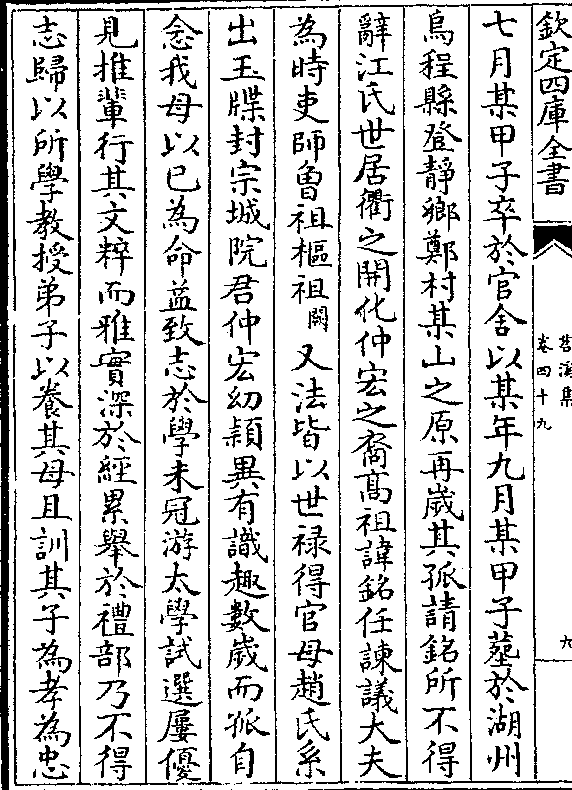 欽定四庫全書
苕溪集
卷四十九
九
七月某甲子卒於官舍以某年九月某甲子塟於湖州
烏程縣登靜鄉鄭村某山之原再歲其孤請銘所不得
辭江氏世居衢之開化仲宏之裔髙祖諱銘任諫議大夫
為時吏師魯祖樞祖闕又法皆以世禄得官母趙氏系
出玉牒封宗城院君仲宏幼穎異有識趣數歲而孤自
念我母以已為命益致志於學未冠游太學試選屢優
見推輩行其文粹而雅實深於經累舉於禮部乃不得
志歸以所學教授弟子以養其母且訓其子為孝為忠